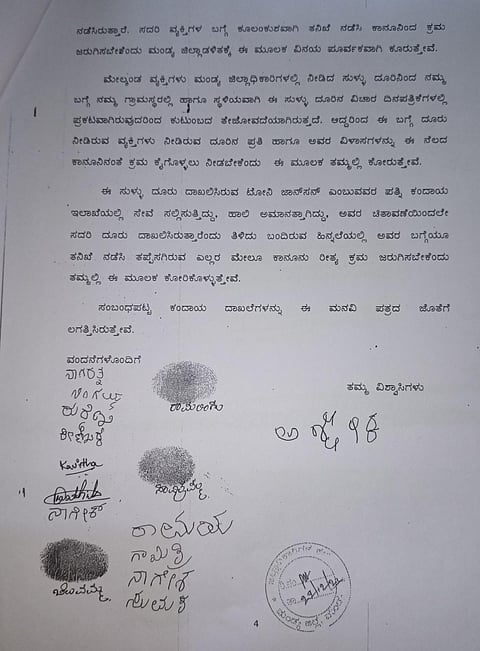 ನಡೆಸಿರುತ್ತಾರೆ. ಸದರಿ ವ್ಯಕ್ತಿಗಳ ಬಗ್ಗೆ ಕೂಲಂಕುಶವಾಗಿ ತನಿಖೆ ನಡೆಸಿ ಕಾನೂನಿಂದ ಕ್ರಮ
ಜರುಗಿಸಬೇಕೆಂದು ಮಂಡ್ಯ ಜಿಲ್ಲಾಡಳಿತಕ್ಕೆ ಈ ಮೂಲಕ ವಿನಯ ಪೂರ್ವಕವಾಗಿ ಕೂರುತ್ತೇವೆ.
ಮೇಲ್ಕಂಡ ವ್ಯಕ್ತಿಗಳು ಮಂಡ್ಯ ಜಿಲ್ಲಾಧಿಕಾರಿಗಳಲ್ಲಿ ನೀಡಿದ ಸುಳ್ಳು ದೂರಿನಿಂದ ನಮ್ಮ
ಬಗ್ಗೆ ನಮ್ಮ ಗ್ರಾಮಸ್ಥರಲ್ಲಿ ಹಾಗೂ ಸ್ಥಳಿಯವಾಗಿ ಈ ಸುಳ್ಳು ದೂರಿನ ವಿಚಾರ ದಿನಪತ್ರಿಕೆಗಳಲ್ಲಿ
ಪ್ರಕಟವಾಗಿರುವುದರಿಂದ ಕುಟುಂಬದ ತೇಜೋವದೆಯಾಗಿರುತ್ತದೆ. ಆದ್ದರಿಂದ ಈ ಬಗ್ಗೆ ದೂರು
ನೀಡಿರುವ ವ್ಯಕ್ತಿಗಳು ನೀಡಿರುವ ದೂರಿನ ಪ್ರತಿ ಹಾಗೂ ಅವರ ವಿಳಾಸಗಳನ್ನು ಈ ನೆಲದ
ಕಾನೂನಿನಂತೆ ಕ್ರಮ ಕೈಗೊಳ್ಳಲು ನೀಡಬೇಕೆಂದು ಈ ಮೂಲಕ ತಮ್ಮಲ್ಲಿ ಕೋರುತ್ತೇವೆ.
ಈ ಸುಳ್ಳು ದೂರು ದಾಖಲಿಸಿರುವ ಟೋನಿ ಜಾನ್‌ಸನ್ ಎಂಬುವವರ ಪತ್ನಿ ಕಂದಾಯ
ಇಲಾಖೆಯಲ್ಲಿ ಸೇವೆ ಸಲ್ಲಿಸುತ್ತಿದ್ದು, ಹಾಲಿ ಅಮಾನತ್ತಾಗಿದ್ದು, ಅವರ ಚಿತಾವಣೆಯಿಂದಲೇ
ಸದರಿ ದೂರು ದಾಖಲಿಸಿರುತ್ತಾರೆಂದು ತಿಳಿದು ಬಂದಿರುವ ಹಿನ್ನಲೆಯಲ್ಲಿ ಅವರ ಬಗ್ಗೆಯೂ
ತನಿಖೆ ನಡೆಸಿ ತಪ್ಪೆಸಗಿರುವ ಎಲ್ಲರ ಮೇಲೂ ಕಾನೂನು ರೀತ್ಯ ಕ್ರಮ ಜರುಗಿಸಬೇಕೆಂದು
ತಮ್ಮಲ್ಲಿ ಈ ಮೂಲಕ ಕೋರಿಕೊಳ್ಳುತ್ತೇವೆ.
ಸಂಬಂಧಪಟ್ಟ ಕಂದಾಯ ದಾಖಲೆಗಳನ್ನು ಈ ಮನವಿ ಪತ್ರದ ಜೊತೆಗೆ
ಲಗತ್ತಿಸಿರುತ್ತೇವೆ.
ವಂದನೆಗಳೊಂದಿಗೆ
ತಮ್ಮ ವಿಶ್ವಾಸಿಗಳು
ನಾಗರತ್ನ
ರಾಮಲಿಂಗು
Kavitha
ಸಾವಿತ್ರಮ್ಮ
ನಾಗೇಶ್
ಚೆಲುವಮ್ಮ
ರಾಮಯ
ಗಾಯಿತ್ರಿ
ನಾಗೇಶ
ಸುಮತಿ
4